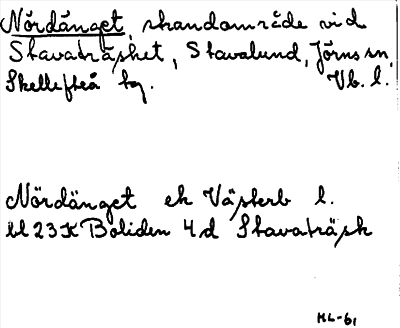 Nördänget, strandområde vid
Stavaträsket, Stavalund, Jörns sn,
Skellefteå tg. Vb. l.
Nördänget ek Västerb l.
bl 23 K Boliden 4 d Stavaträsk
KL-61